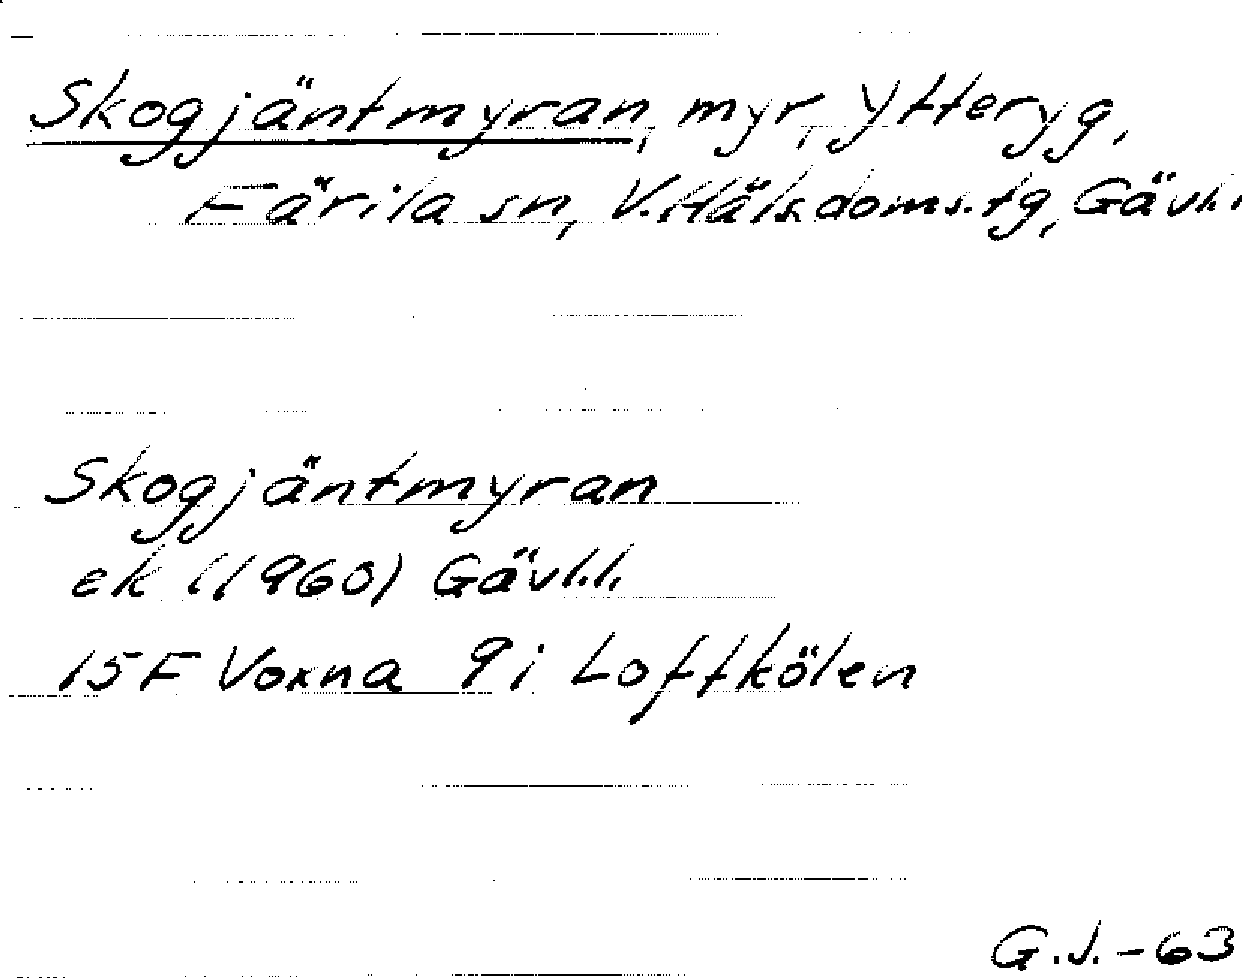 Skogjäntmyran, myr, Ytteryg,
Färila sn, V.Häls.doms.tg, Gävl.l.
Skogjäntmyran
ek (1960) Gävl.l.
15F Voxna 9i Loftkölen
G.J.-63